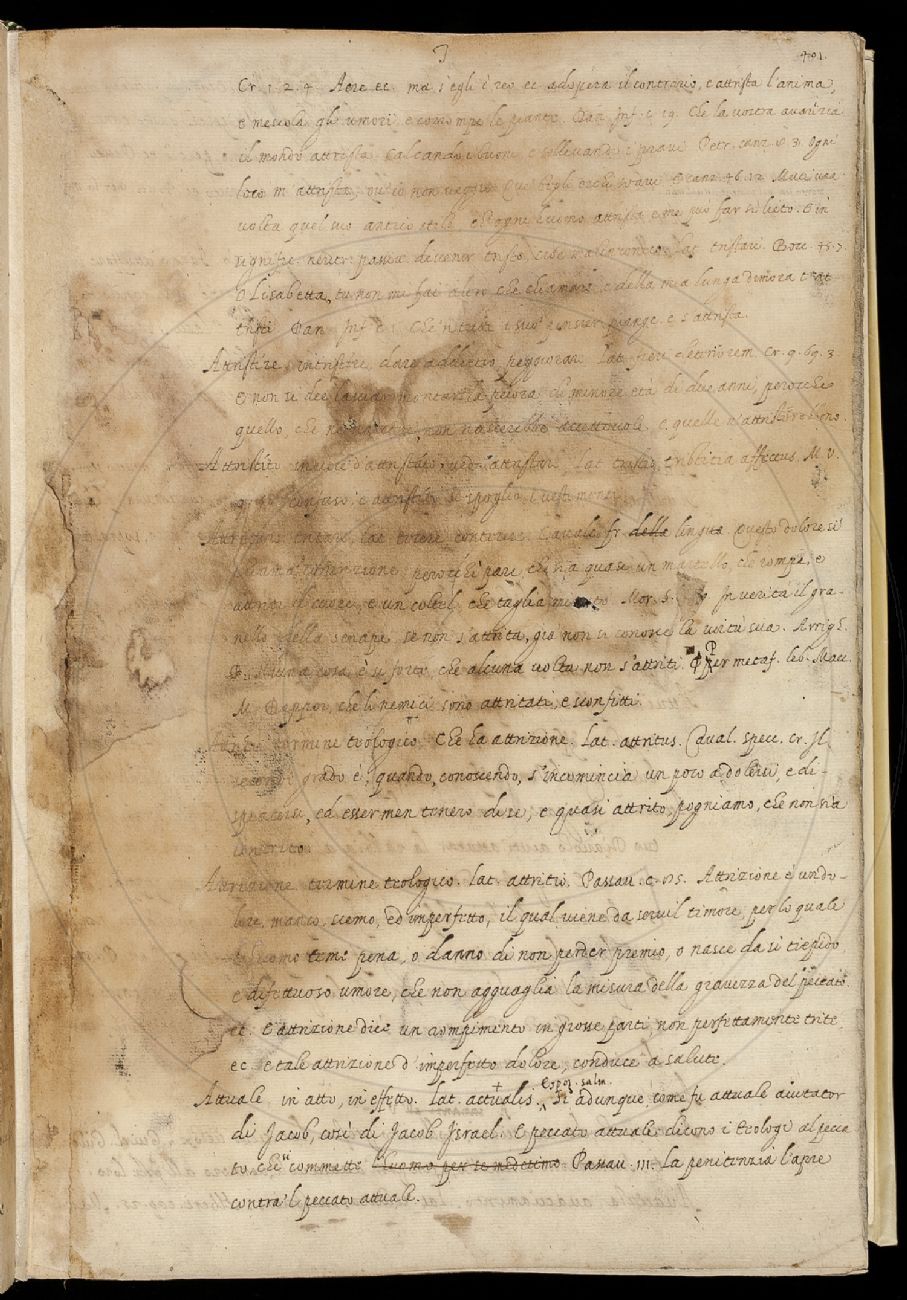 401.
Cr. 1. 2. 4 Aere ec. ma s'egli è reo ec adopera il contrario, e attrista l'anima,
e mescola gli umori e corrompe le piante. Dan. Inf. c. 19. Che la vostra avarizia
il mondo attrista Calcando i buoni e sollevando i pravi Petr. canz. 3. Ogni
loco m'attrista, ov' io non veggio Que' begli occhi soavi E canz. 46. 12. Muti una
volta quel suo antico stile, Ch'ogni huomo attrista e me può far sì lieto. E in
signific. neutr. pass. divenir tristo, cioè maninconico. Lat. tristari. Bocc. 45. 7.
O Lisabetta, tu non mi fai altro che chiamare e della mia lunga dimora t'at
tristi Dan. Inf. c. 1. Che 'n tutti i suoi pensier piange e s'attrista.
Attristire intristire, dare addietro, peggiorare Lat. fieri deteriorem. Cr. 9. 69. 3.
E non si dee lasciar montar la pecora di minore età di due anni, perocchè
quello, che ne nascesse, non nascerebbe accettevole, e quelle n'attristirebbeno.
Attristito in vece d'attristato, vedi attristare. Lat. tristis, tristitia affectus. M. V.
confuso e attristito si spogliò i vestimenti
Lat. terere conterere. Cavalc. fr. della lingua Questo dolore si
chiama contrizione perocchè pare che sia quasi un martello, che rompe, e
attrita il cuore, e un coltel, che taglia Mor. S. In verità il gra-
nello della senape, se non s'attrita, già non si conosce la virtù sua. Arrigh.
Niuna cosa è sì forte che alcuna volta non s'attriti. Per metaf. leb. Macc.
M. Beppor, che li nemici sono attritati, e sconfitti.
termine teologico. Che ha attrizione. Lat. attritus. Caval. specc. cr. Il
secondo grado è, quando, conoscendo, s'incomincia un poco a dolersi, e di-
spiacersi, ed esser men tenero di se, e quasi attrito, pogniamo, che non sia
contrito.
Attrizione termine teologico. Lat. attritio. Passav. c. 125. Attrizione è un do-
lore manco, scemo, ed imperfetto, il qual viene da servil timore, per lo quale
l'huomo teme pena, o danno di non perder premio, o nasce da sì tiepido
e difettuoso amore, che non agguaglia la misura della gravezza del peccato.
ec. E attrizione dice un rompimento in grosse parti non perfettamente trite
ec. e tale attrizione d'imperfetto dolore, conduce a salute.
Attuale in atto, in effetto. Lat. actualis. Espos. salm. Sì adunque come fu attuale aiutator
di Jacob, così di Jacob Israel. E peccato attuale dicono i teologi al pecca
to, che si commette l'huomo per se medesimo Passav. 111. La penitenzia l'apre
contra 'l peccato attuale.